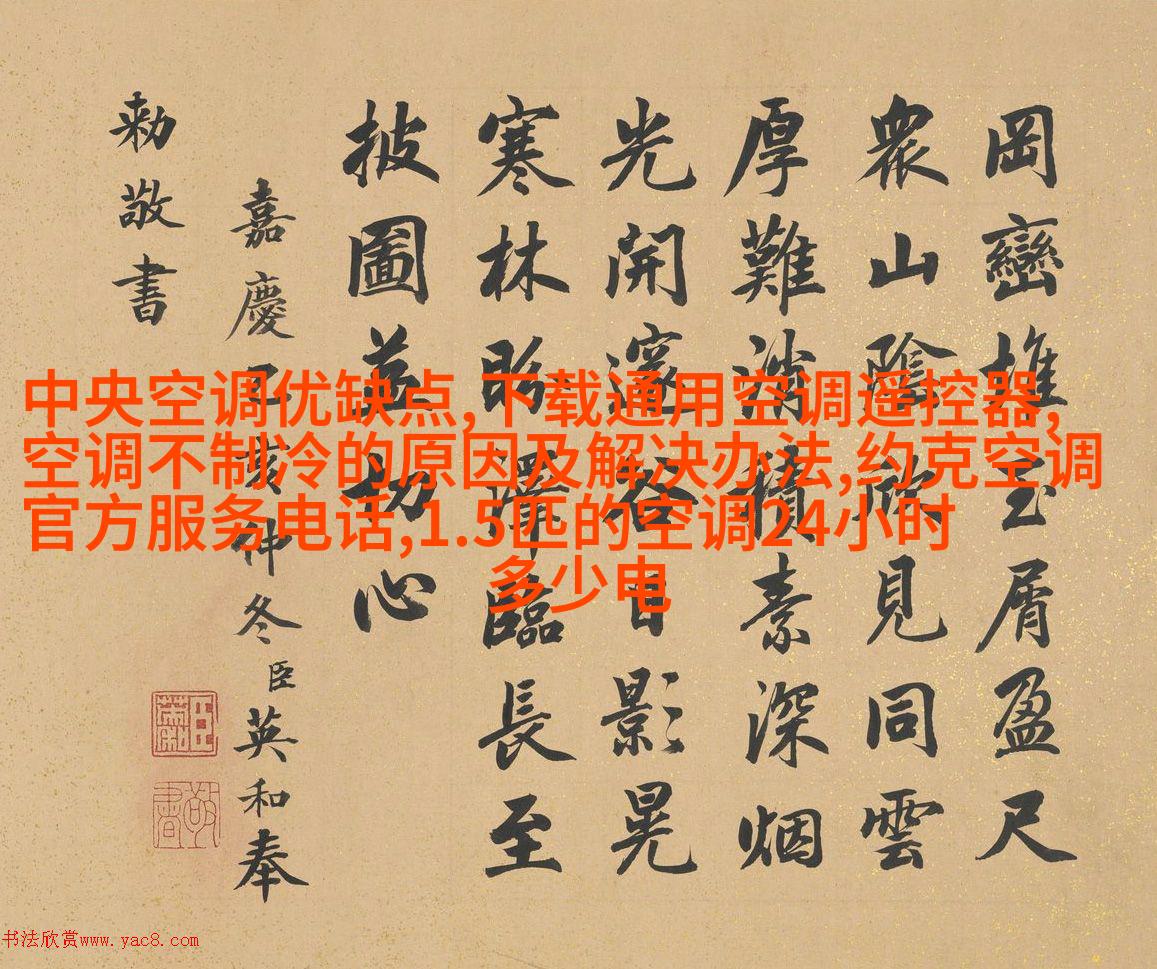 中央空调优缺点,下载通用空调遥控器,
空调不制冷的原因及解决办法,约克空调
官方服务电话,1.5匹的空调24小时
多少电
岡巒堆玉屑盈尺
衆山陰欣見同雲
厚難消積素深烟
光開邃谷日影晃
寒林盼澤臨長至
披圖並切心
嘉慶亥仲冬臣英和奉
勅敬書
敬書
书法欣赏www.yac8.com